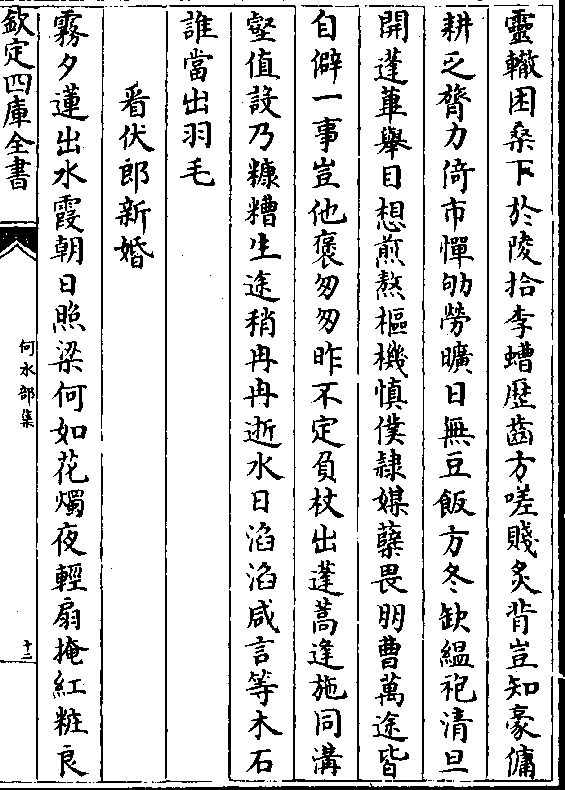 靈轍困桑下於陵拾李螬歴齒方嗟賤炙背豈知豪傭
耕乏膂力倚市憚劬勞曠日無豆飯方冬缺緼袍清旦
開蓬蓽舉目想煎熬樞機慎僕隸媒糵畏朋曹萬途皆
自僻一事豈他褒匆匆昨不定負杖出蓬蒿逢施同溝
壑值設乃糠糟生途稍冉冉逝水日滔滔咸言等木石
誰當出羽毛
看伏郎新婚
霧夕蓮出水霞朝日照梁何如花燭夜輕扇掩紅粧良
欽定四庫全書
何水部集
十二